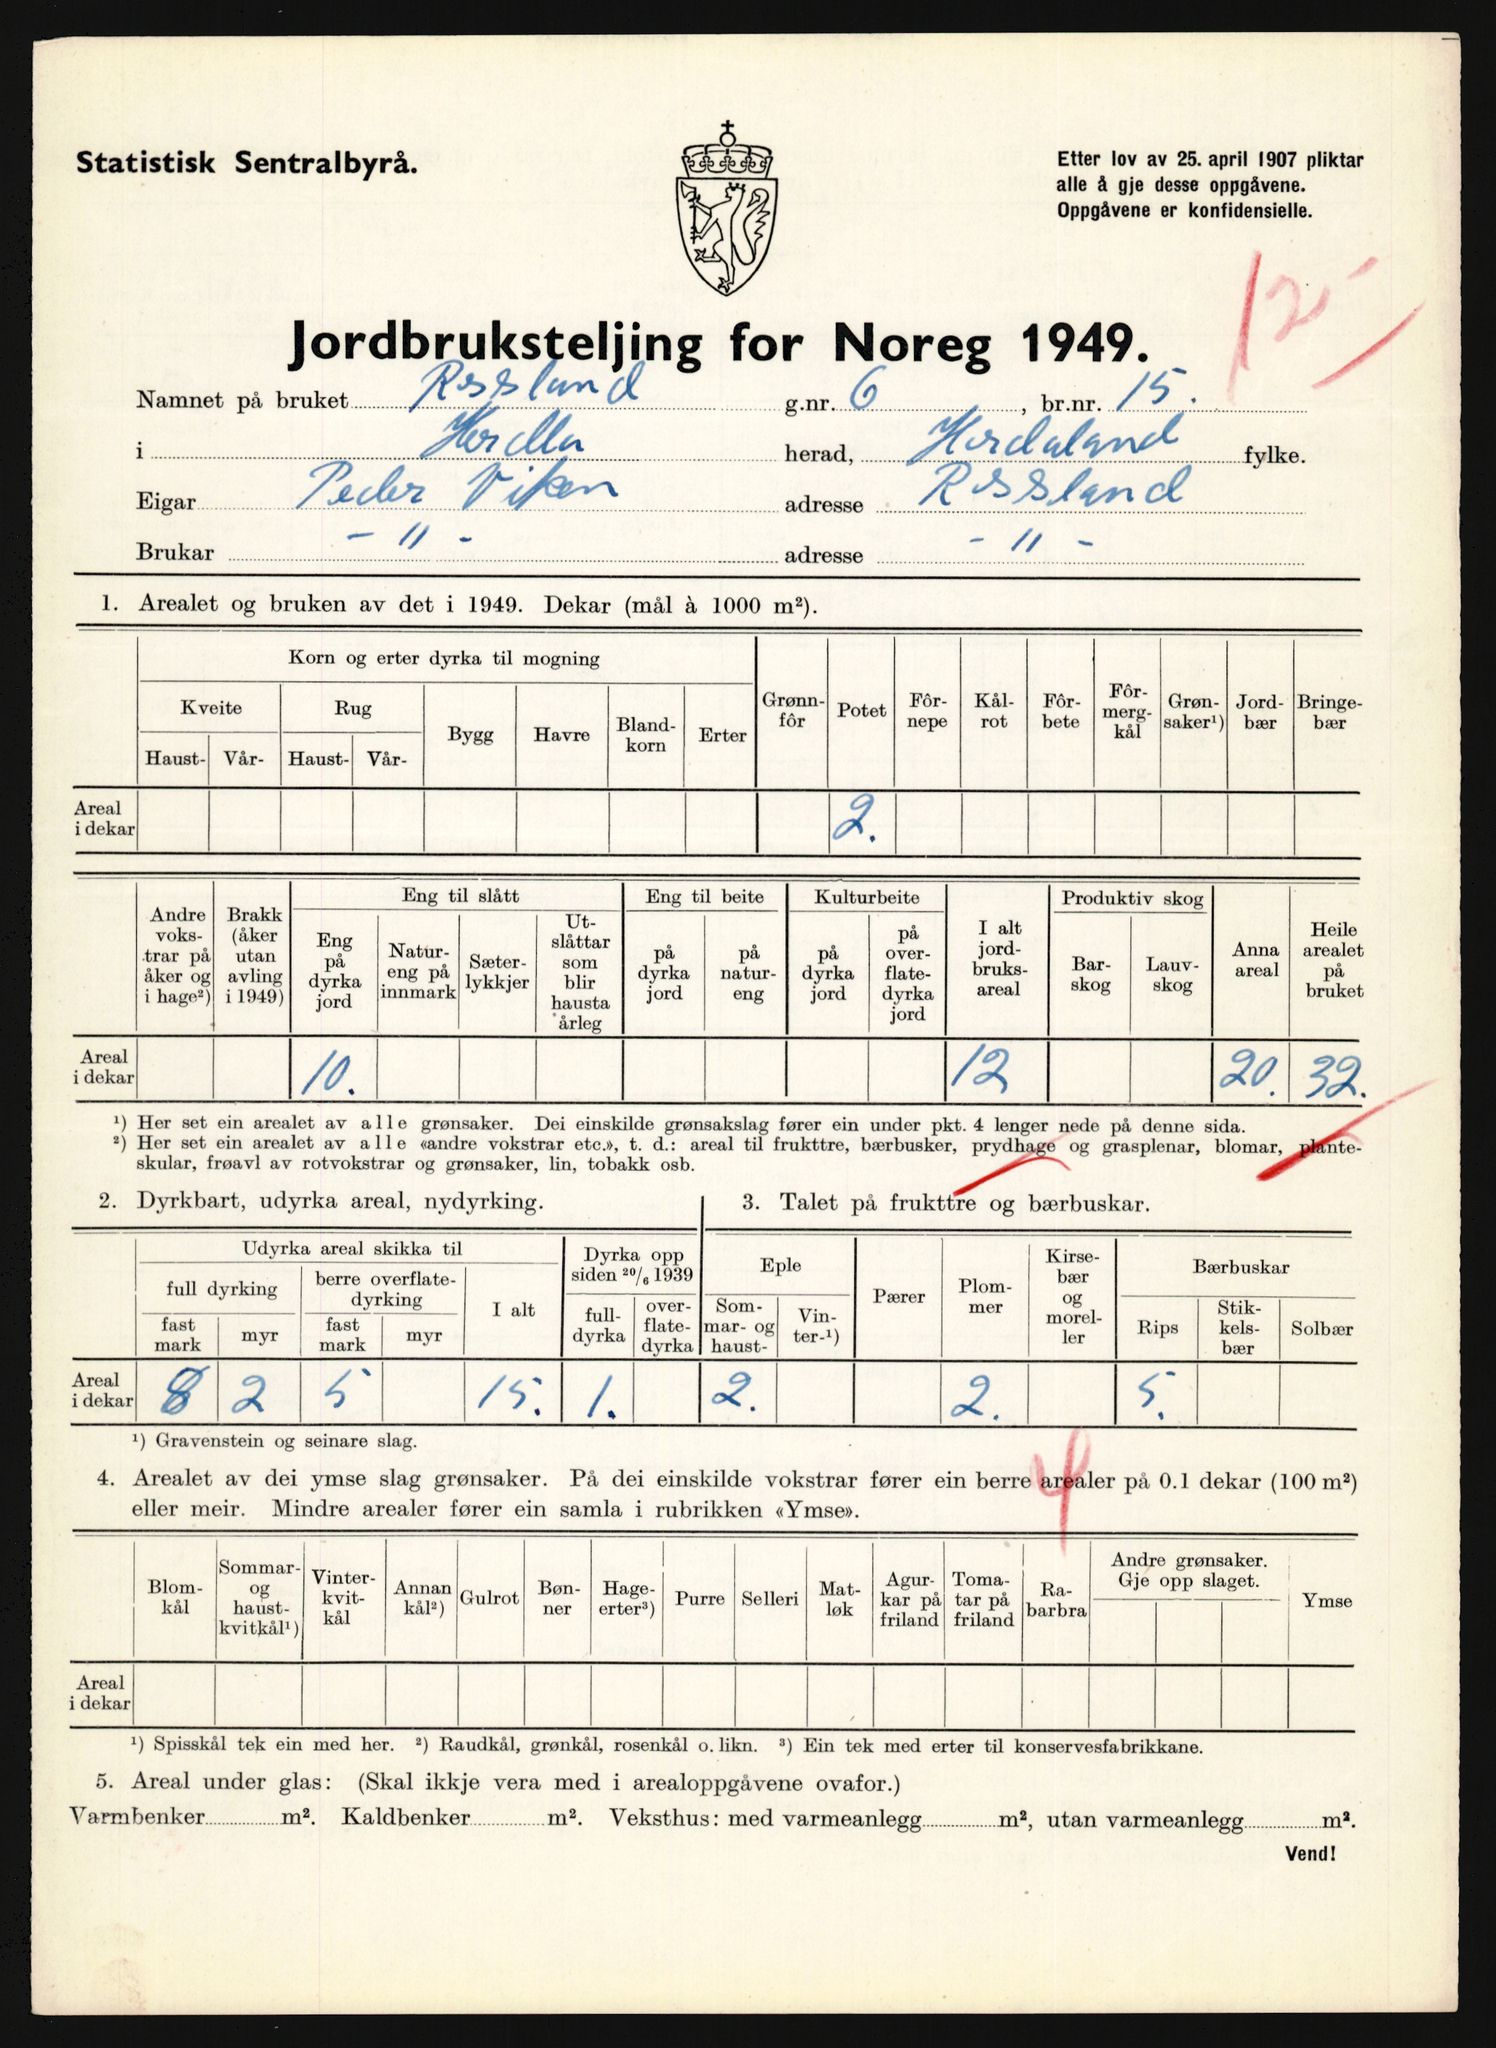 Statistisk Sentralbyrå.
Etter lov av 25. april 1907 pliktar
alle å gje desse oppgåvene.
Oppgåvene er konfidensielle.
Jordbruksteljing for Noreg 1949.
Namnet på bruket Rossland g.nr. 6, br.nr. 15.
i Herdla herad, Hordaland fylke.
Eigar Peder Viken adresse Rossland
Brukar - " - adresse - " -
1. Arealet og bruken av det i 1949. Dekar (mål à 1000 m²).
Korn og erter dyrka til mogning
Kveite Rug
Haust- Vår- Haust- Vår- Bygg Havre Bland-korn Erter Grønn-fôr Potet Fôr-nepe Kål-rot Fôr-bete Fôr-merg-kål Grøn-saker¹) Jord-bær Bringe-bær
Areal i dekar 2.
Eng til slått Eng til beite Kulturbeite Produktiv skog
Andre voks-trar på åker og i hage²) Brakk (åker utan avling i 1949) Eng på dyrka jord Natur-eng på innmark Sæter-lykkjer Ut-slåttar som blir hausta årleg på dyrka jord på natur-eng på dyrka jord på over-flate-dyrka jord I alt jord-bruks-areal Bar-skog Lauv-skog Anna areal Heile arealet på bruket
Areal i dekar 10. 12 20. 32.
¹) Her set ein arealet av alle grønsaker. Dei einskilde grønsakslag fører ein under pkt. 4 lenger nede på denne sida.
²) Her set ein arealet av alle «andre vokstrar etc.», t. d.: areal til frukttre, bærbusker, prydhage og grasplenar, blomar, plante-
skular, frøavl av rotvokstrar og grønsaker, lin, tobakk osb.
2. Dyrkbart, udyrka areal, nydyrking.
Udyrka areal skikka til Dyrka opp siden 20/6 1939
full dyrking berre overflate-dyrking I alt full-dyrka over-flate-dyrka
fast mark myr fast mark myr
Areal i dekar 8 2 5 15. 1.
3. Talet på frukttre og bærbuskar.
Eple Pærer Plom-mer Kirse-bær og morel-ler Bærbuskar
Som-mar- og haust- Vin-ter-¹) Rips Stik-kels-bær Solbær
2. 2. 5.
4
¹) Gravenstein og seinare slag.
4. Arealet av dei ymse slag grønsaker. På dei einskilde vokstrar fører ein berre arealer på 0.1 dekar (100 m²)
eller meir. Mindre arealer fører ein samla i rubrikken «Ymse».
Blom-kål Sommar- og haust-kvitkål¹) Vinter-kvit-kål Annan kål²) Gulrot Bøn-ner Hage-erter³) Purre Selleri Mat-løk Agur-kar på friland Toma-tar på friland Ra-barbra Andre grønsaker. Gje opp slaget. Ymse
Areal i dekar
¹) Spisskål tek ein med her. ²) Raudkål, grønkål, rosenkål o. likn. ³) Ein tek med erter til konservesfabrikkane.
5. Areal under glas: (Skal ikkje vera med i arealoppgåvene ovafor.)
Varmbenker m². Kaldbenker m². Veksthus: med varmeanlegg m², utan varmeanlegg m².
Vend!